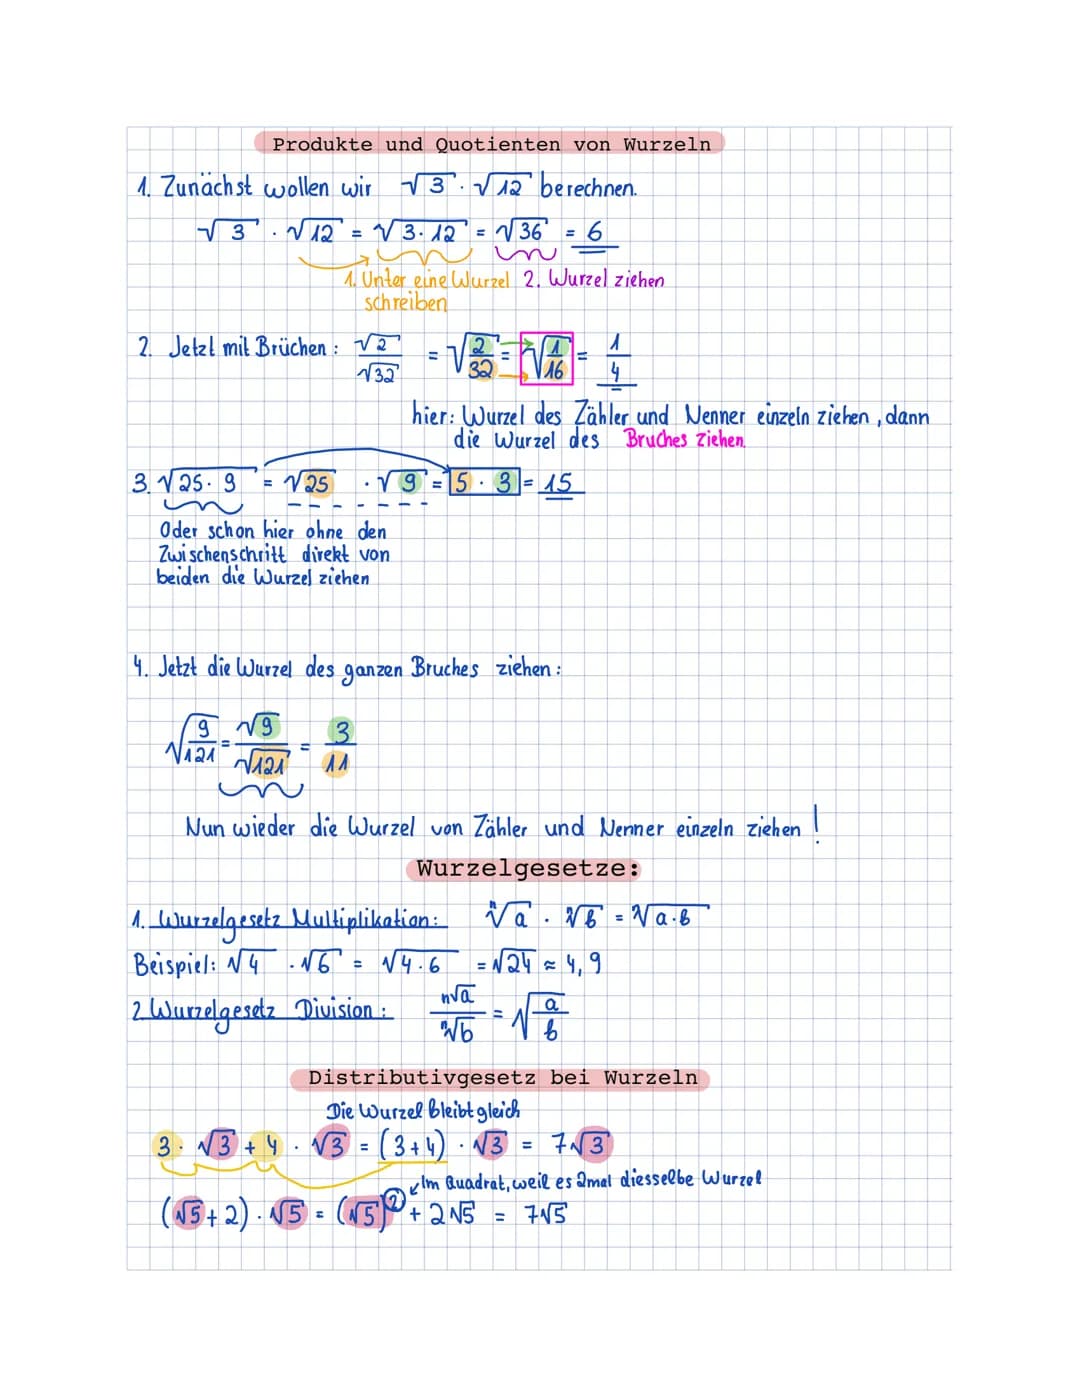 Produkte und Quotienten von Wurzeln
1. Zunächst wollen wir √3 · √12 berechnen.
√3 · √12 = √3·12 = √36 = 6
1. Unter eine Wurzel 2. Wurzel ziehen
schreiben
2. Jetzt mit Brüchen: √2/√32 = √2/32 = √1/16 = 1/4
hier: Wurzel des Zähler und Nenner einzeln ziehen, dann
die Wurzel des Bruches ziehen.
3. √25·9 = √25 · √9 = 5 · 3 = 15
Oder schon hier ohne den
Zwischenschritt direkt von
beiden die Wurzel ziehen
4. Jetzt die Wurzel des ganzen Bruches ziehen:
√9/121 = √9/√121 = 3/11
Nun wieder die Wurzel von Zähler und Nenner einzeln ziehen!
Wurzelgesetze:
1. Wurzelgesetz Multiplikation: ⁿ√a · ⁿ√b = ⁿ√a·b
Beispiel: √4 · √6 = √4·6 = √24 ≈ 4,9
2. Wurzelgesetz Division: n√a/ⁿ√b = √a/b
Distributivgesetz bei Wurzeln
Die Wurzel bleibt gleich
3 · √3 + 4 · √3 = (3+4) · √3 = 7√3
Im Quadrat, weil es 2mal diesselbe Wurzel
(√5+2) · √5 = (√5)² + 2√5 = 7√5